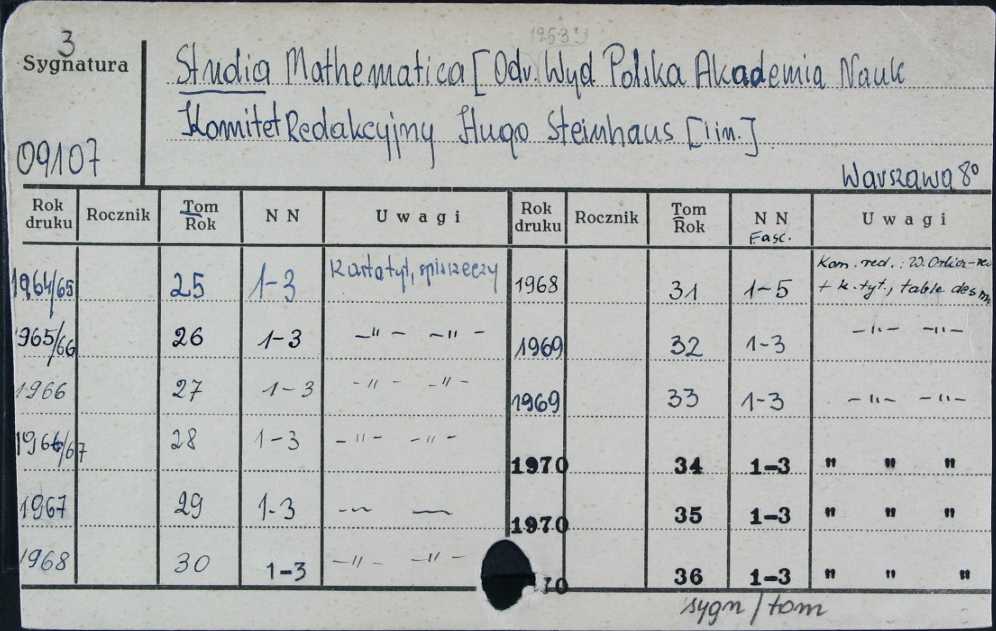 3
Sygnatura
09107
Studia Mathematica [Odr. Wyd Polska Akademia Nauk
Komitet Redakcyjny Hugo Steinhaus [i in.]
Warszawa 8°
Rok druku Rocznik Tom Rok N N Uwagi Rok druku Rocznik Tom Rok N N Fasc. Uwagi
1964/65 25 1-3 Karta tyt, spis rzeczy 1968 31 1-5 Kom. red.: W. Orlicz + k. tyt., table des m
1965/66 26 1-3 -"- -"- 1969 32 1-3 -"- -"-
1966 27 1-3 -"- -"- 1969 33 1-3 -"- -"-
1966/67 28 1-3 -"- -"- 1970 34 1-3 " " "
1967 29 1-3 1970 35 1-3 " " "
1968 30 1-3 -"- -"- 70 36 1-3 " " "
sygn/tom